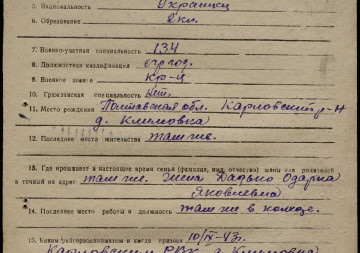 5. Национальность Украинец
6. Образование 2 кл.
7. Военно-учетная специальность 134
8. Должностная квалификация
9. Военное звание кр-ц
10. Гражданская специальность Нет.
11. Место рождения Полтавская обл. Карловский р-н
д. Климовка
12. Последнее место жительства там же.
13. Где проживает в настоящее время семья (фамилия, имя, отчество) жены или родителей
и точный их адрес там же. Жена Дадько Одарка
Яковлевна
14. Последнее место работы и должность там же в колхозе.
15. Каким райгорвоенкоматом и когда призван 10/IX-43г.
Карловским РВК д. Климовка